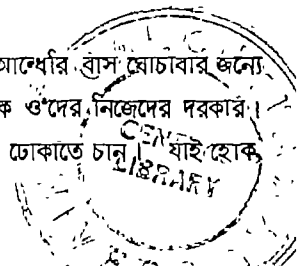 আন্ধেরি বাস ঘোচাবার জন্যে
ক ওঁদের নিজেদের দরকার।
ঢোকাতে চান। যাই হোক
CENT
LIBRARY